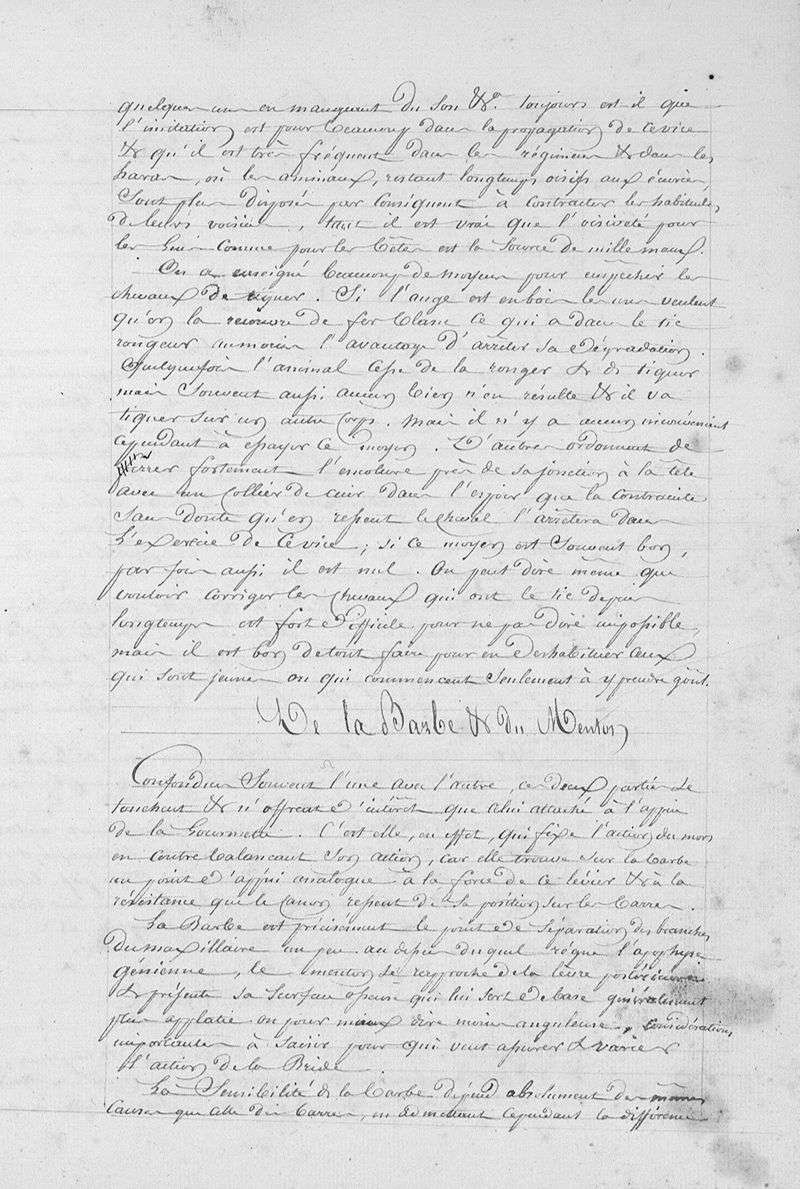 quelques uns en mangeant du son &a. toujours est il que
l'imitation est pour beaucoup dans la propagation de ce vice
& qu'il est très fréquent dans les régimens & dans les
haras, où les animaux, restant longtemps oisifs aux écuries,
Sont plus disposés par conséquent à contracter les habitudes
de leurs voisins, tant il est vrai que l'oisiveté pour
les gens comme pour les bêtes est la source de mille maux.
On a enseigné beaucoup de moyens pour empêcher les
chevaux de tiquer. Si l'auge est en bois les uns veulent
qu'on la recouvre de fer blanc ce qui a dans le tic
rongeur au moins l'avantage d'arrêter sa dégradation.
Quelquefois l'animal cesse de la ronger & de tiquer
mais Souvent aussi aucun bien n'en résulte & il va
tiquer sur un autre Corps. Mais il n'y a aucun inconvénient
cependant à essayer ce moyen. D'autres ordonnent de
serrer fortement l'encolure près de sa jonction à la tête
avec un Collier de cuir dans l'espoir que la contrainte
sans doute qu'en ressent le cheval l'arrêtera dans
l'exercice de ce vice ; si ce moyen est Souvent bon,
par fois aussi il est nul. On peut dire même que
vouloir corriger les Chevaux qui ont le tic depuis
longtemps est fort difficile pour ne pas dire impossible,
mais il est bon de tout faire pour en deshabituer ceux
qui sont jeunes ou qui commencent Seulement à y prendre goût.
De la Barbe & du Menton
Confondues Souvent l'une avec l'autre, ces deux parties se
touchent & n'offrent d'intérêt que celui attaché à l'appui
de la Gourmette. C'est elle, en effet, qui fixe l'action du mors
en contre balançant son action, car elle trouve sur la barbe
un point d'appui analogue à la force de ce levier & à la
résistance que le Canon ressent de sa position sur les barres.
La Barbe est précisément le point de séparation des branches
du maxillaire un peu au dessus duquel règne l'apophyse
génienne, le menton se rapproche de la lèvre postérieure
& présente sa surface osseuse qui lui sert de base généralement
plus applatie ou pour mieux dire moins anguleuse, considérations
importantes à saisir pour qui veut assurer & varier
l'action de la Bride.
La Sensibilité de la barbe dépend absolument des mêmes
causes que celle des barres, en admettant cependant la différence